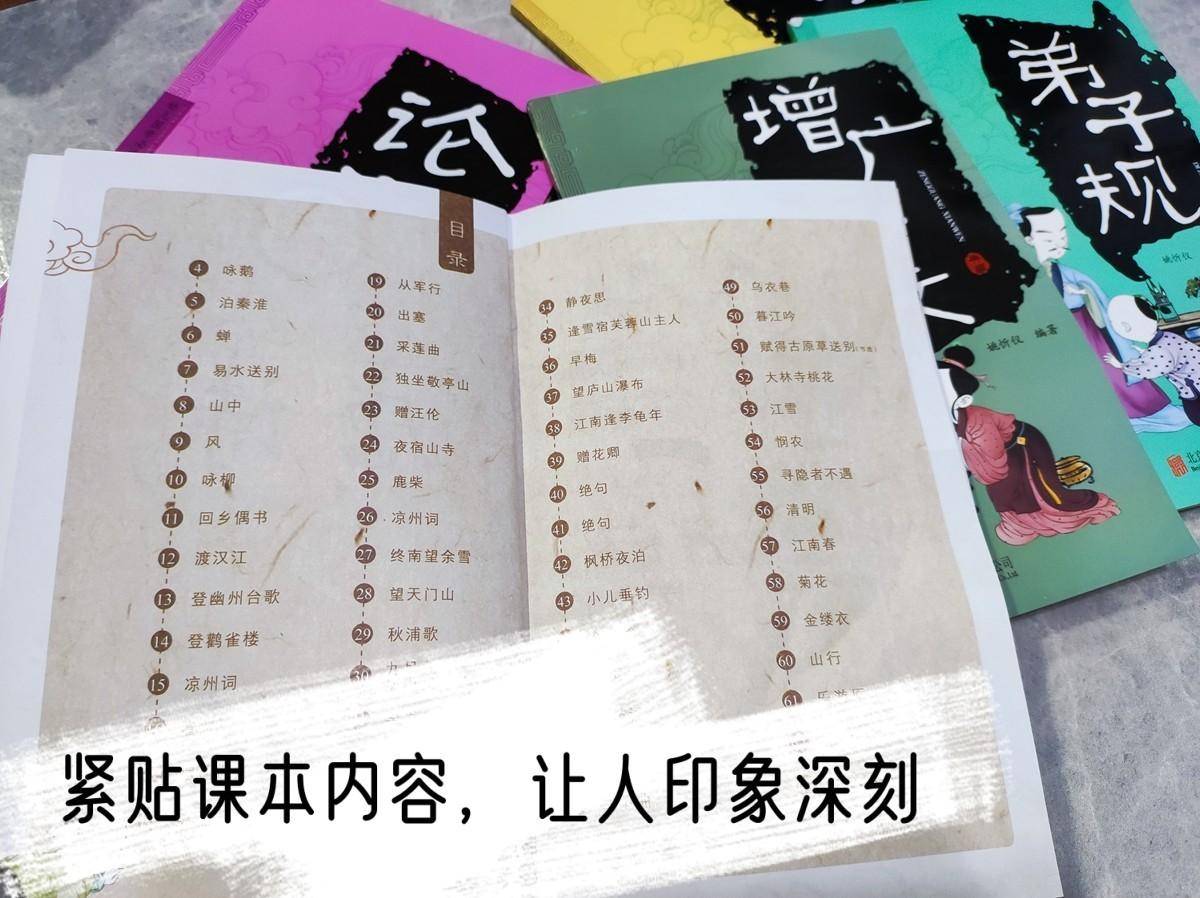 论
增广
ZENGGUANG XIANWEN
姚忻仪 编著
弟子规
姚忻仪
目录
4 咏鹅
5 泊秦淮
6 蝉
7 易水送别
8 山中
9 风
10 咏柳
11 回乡偶书
12 渡汉江
13 登幽州台歌
14 登鹳雀楼
15 凉州词
19 从军行
20 出塞
21 采莲曲
22 独坐敬亭山
23 赠汪伦
24 夜宿山寺
25 鹿柴
26 凉州词
27 终南望余雪
28 望天门山
29 秋浦歌
30 九
34 静夜思
35 逢雪宿芙蓉山主人
36 早梅
37 望庐山瀑布
38 江南逢李龟年
39 赠花卿
40 绝句
41 绝句
42 枫桥夜泊
43 小儿垂钓
49 乌衣巷
50 暮江吟
51 赋得古原草送别(节选)
52 大林寺桃花
53 江雪
54 悯农
55 寻隐者不遇
56 清明
57 江南春
58 菊花
59 金缕衣
60 山行
61 乐游
紧贴课本内容，让人印象深刻